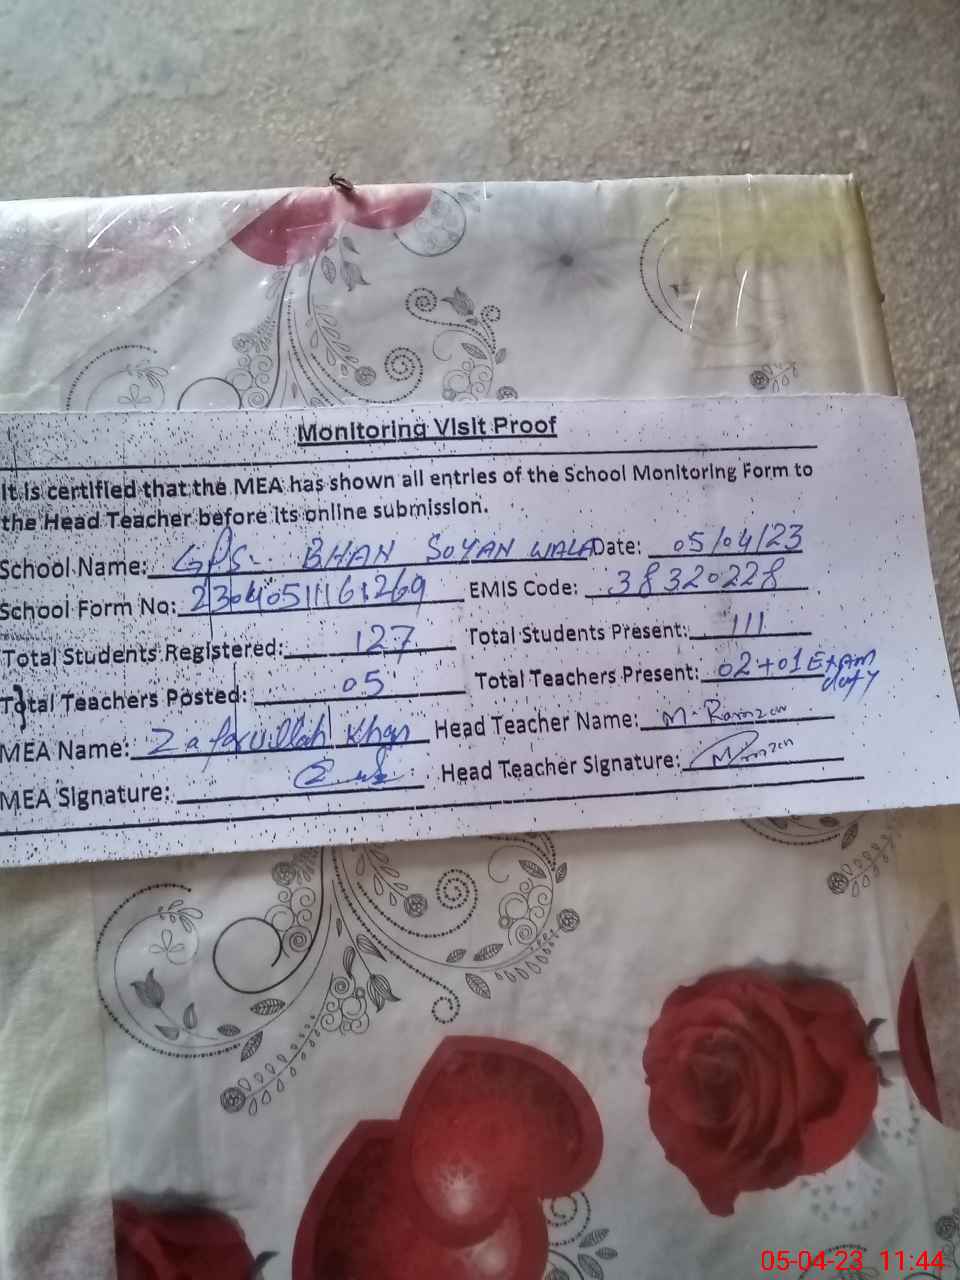 Monitoring Visit Proof
It is certified that the MEA has shown all entries of the School Monitoring Form to
the Head Teacher before its online submission.
School Name: GPS. BHAN SOYAN WALA Date: 05/04/23
School Form No: 23040511161269 EMIS Code: 38320228
Total Students Registered: 127 Total Students Present: 111
Total Teachers Posted: 05 Total Teachers Present: 02+01 Exam duty
MEA Name: Zafarullah Khan Head Teacher Name: M. Ramzan
MEA Signature: Head Teacher Signature:
05-04-23 11:44